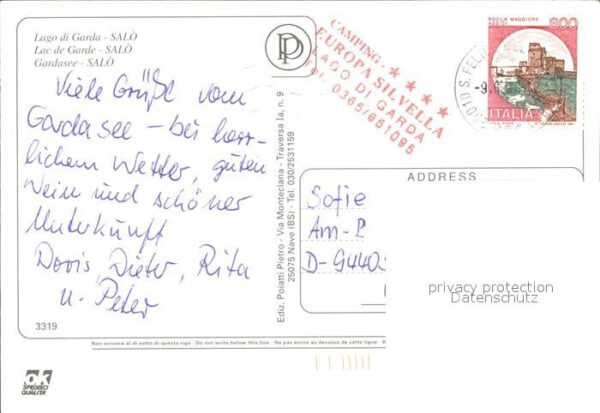 Lago di Garda - SALÒ
Lac de Garde - SALÒ
Gardasee - SALÒ
Viele Grüße vom
Gardasee – bei herr-
lichem Wetter, guten
Wein und schöner
Unterkunft
Doris, Dieter, Rita
u. Peter
3319
OK
SPEDISCI
QUALITER
Ediz. Poiatti Pietro - Via Monteclana - Traversa 1a, n. 9
25075 Nave (BS) - Tel. 030/2531159
PD
CAMPING
EUROPA SILVELLA
LAGO DI GARDA
Tel. 0365/651095
ROCCA MAGGIORE
ASSISI
800
ITALIA
S. FELI
ADDRESS
Sofie
Am-
D-9440
privacy protection
Datenschutz
Non scrivere al di sotto di questa riga - Do not write below this line - Ne pas écrire au-dessous de cette ligne